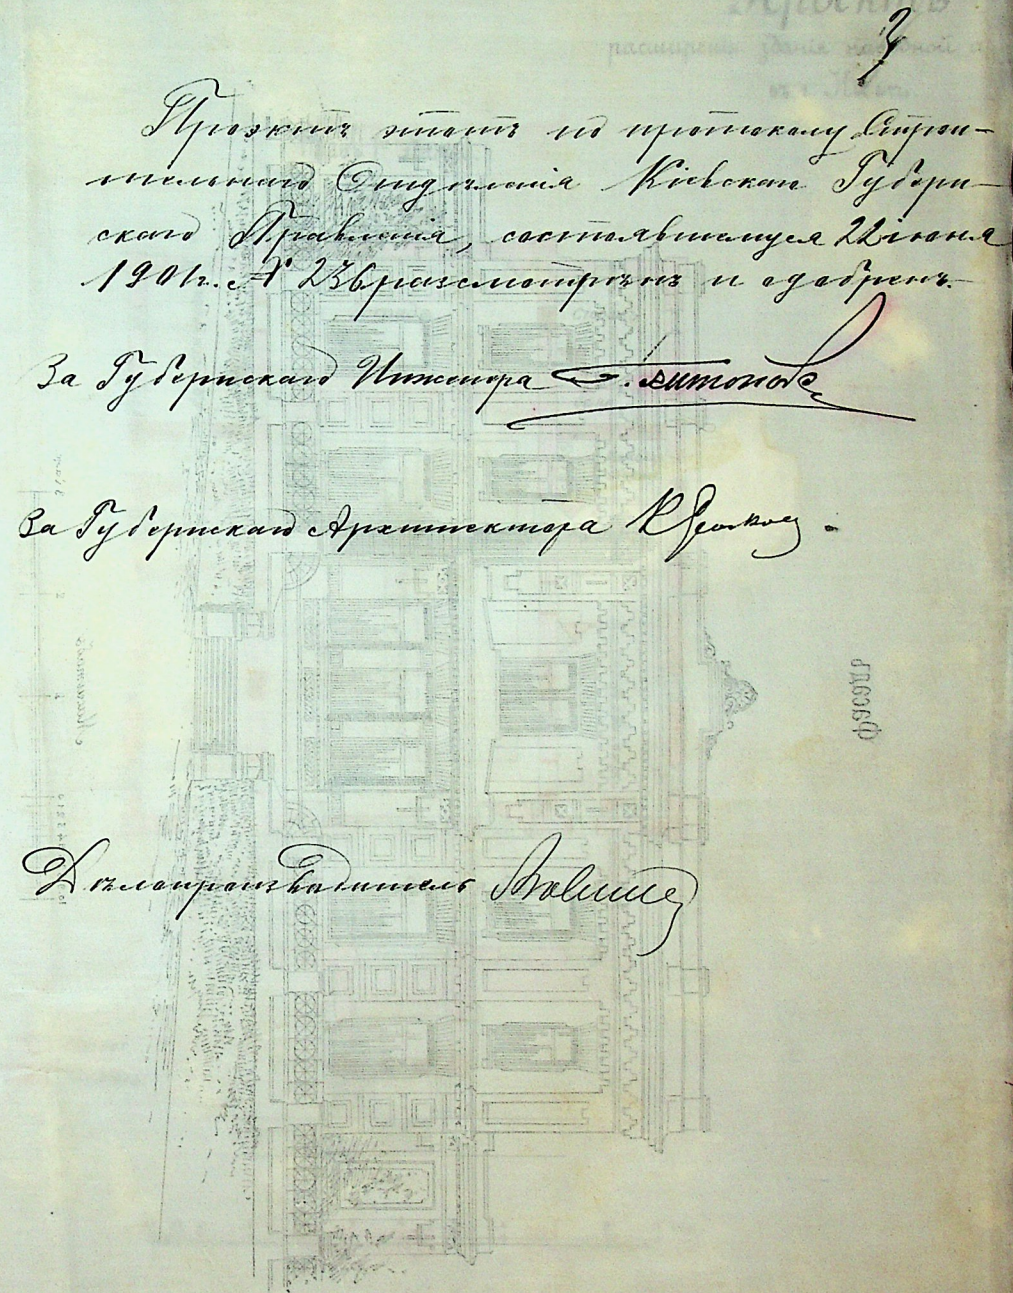 3
Проэктъ этотъ по протоколу Строи-
тельнаго Отдѣленія Кіевскаго Губерн-
скаго Правленія, состоявшемуся 22 іюня
1901 г. № 236 разсмотрѣнъ и одобренъ.
За Губернскаго Инженера
За Губернскаго Архитектора
Дѣлопроизводитель
Фасадъ